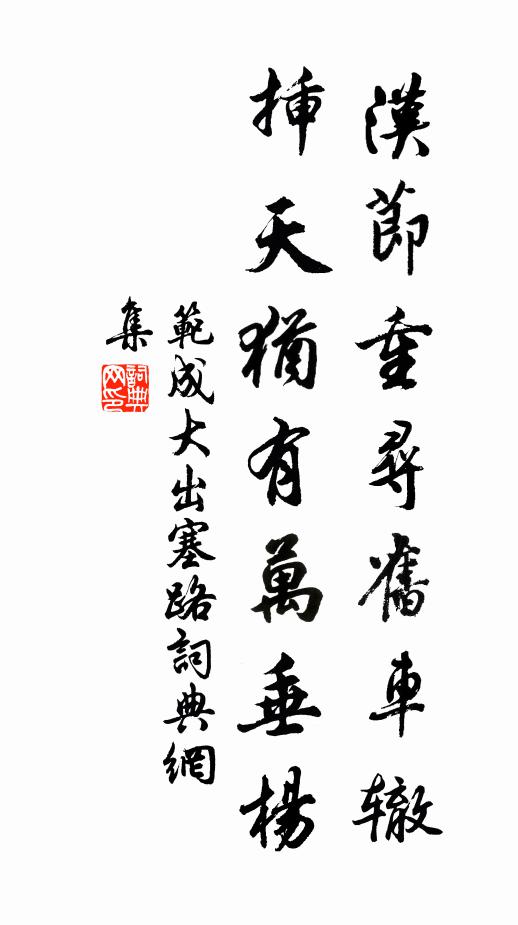 漢節重尋舊車辙
插天猶有萬垂楊
範成大出塞路詞典網
集
詞典
网印